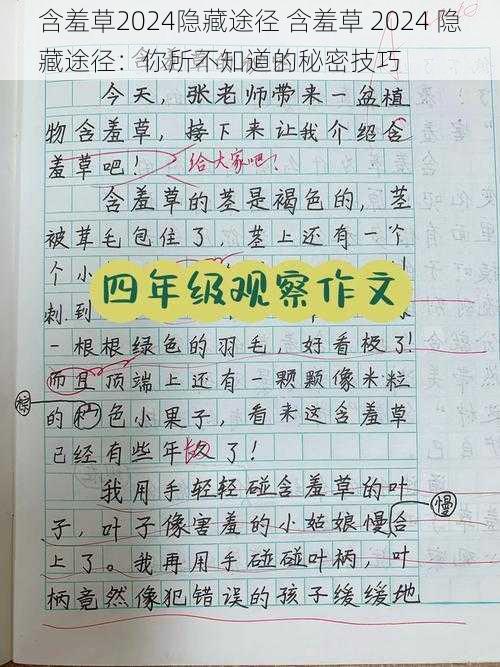 含羞草2024隐藏途径 含羞草 2024 隐
藏途径：你所不知道的秘密技巧
今天，张老师带来一盆植
物含羞草，接下来让我介绍含
羞草吧！给大家吧？
含羞草的茎是褐色的，茎
被茸毛包住了，茎上还有一个
个小
刺.到
四年级观察作文
一根根绿色的羽毛，好看极了！
而且顶端上还有一颗颗像米粒
的色小果子，看来这含羞草
棕
已经有些年了！
我用手轻轻碰含羞草的叶
慢
子，叶子像害羞的小姑娘慢合
上了。我再用手碰碰叶柄，叶
柄竟然像犯错误的孩子缓缓地